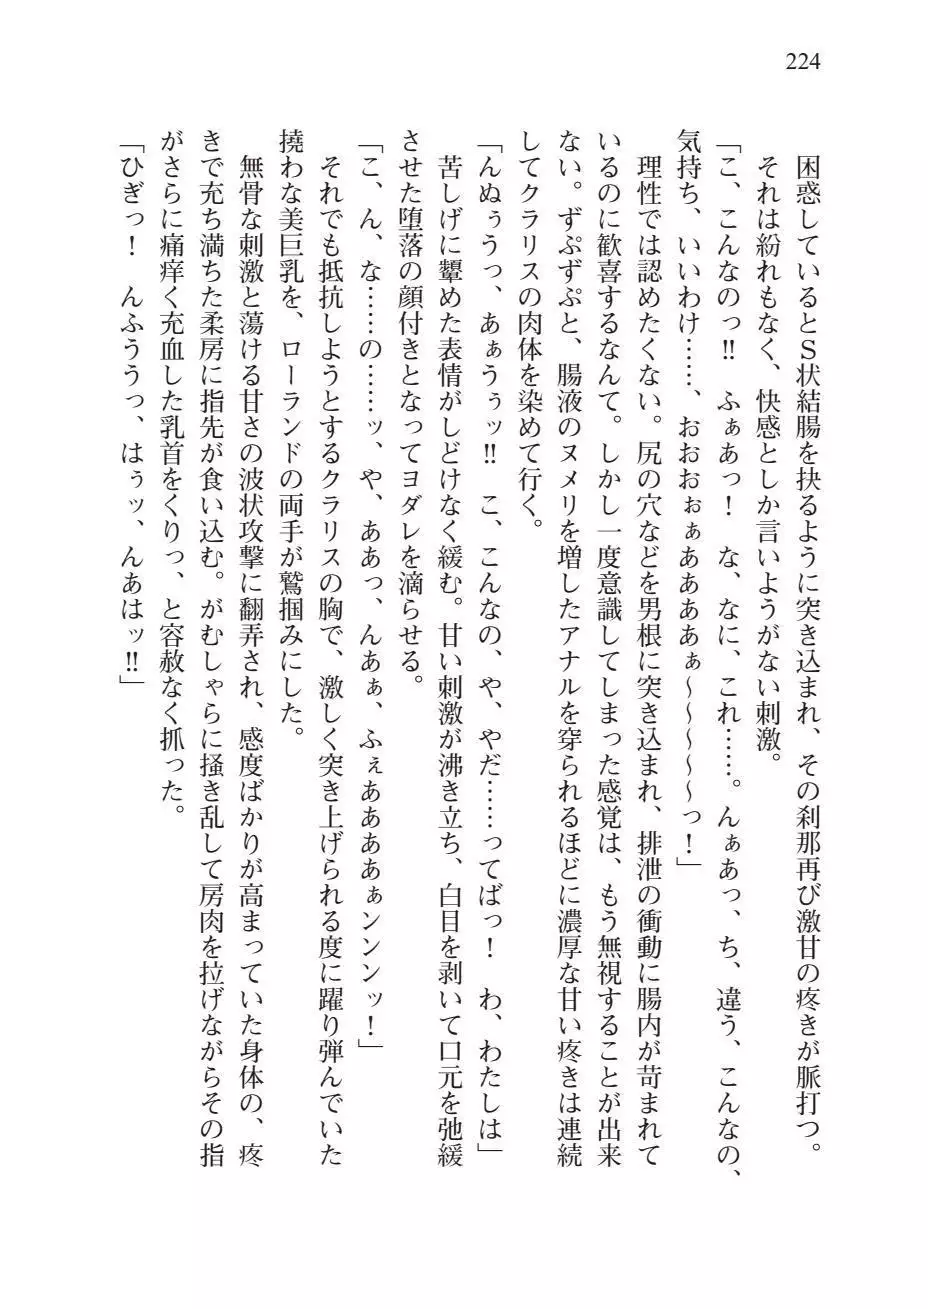 224
困惑しているとＳ状結腸を抉るように突き込まれ、その刹那再び激甘の疼きが脈打つ。
それは紛れもなく、快感としか言いようがない刺激。
「こ、こんなのっ‼　ふぁあっ！　な、なに、これ……。んぁあっ、ち、違う、こんなの、
気持ち、いいわけ……、おおおぉぁああああぁ～～～～～っ！」
理性では認めたくない。尻の穴などを男根に突き込まれ、排泄の衝動に腸内が苛まれて
いるのに歓喜するなんて。しかし一度意識してしまった感覚は、もう無視することが出来
ない。ずぷずぷと、腸液のヌメリを増したアナルを穿られるほどに濃厚な甘い疼きは連続
してクラリスの肉体を染めて行く。
「んぬぅうっ、あぁうぅッ‼　こ、こんなの、や、やだ……ってばっ！　わ、わたしは」
苦しげに顰めた表情がしどけなく緩む。甘い刺激が沸き立ち、白目を剥いて口元を弛緩
させた堕落の顔付きとなってヨダレを滴らせる。
「こ、ん、な……の……ッ、や、ああっ、んあぁ、ふぇああああぁンンンッ！」
それでも抵抗しようとするクラリスの胸で、激しく突き上げられる度に躍り弾んでいた
撓わな美巨乳を、ローランドの両手が鷲掴みにした。
無骨な刺激と蕩ける甘さの波状攻撃に翻弄され、感度ばかりが高まっていた身体の、疼
きで充ち満ちた柔房に指先が食い込む。がむしゃらに掻き乱して房肉を拉げながらその指
がさらに痛痒く充血した乳首をくりっ、と容赦なく抓った。
「ひぎっ！　んふううっ、はぅッ、んあはッ‼」